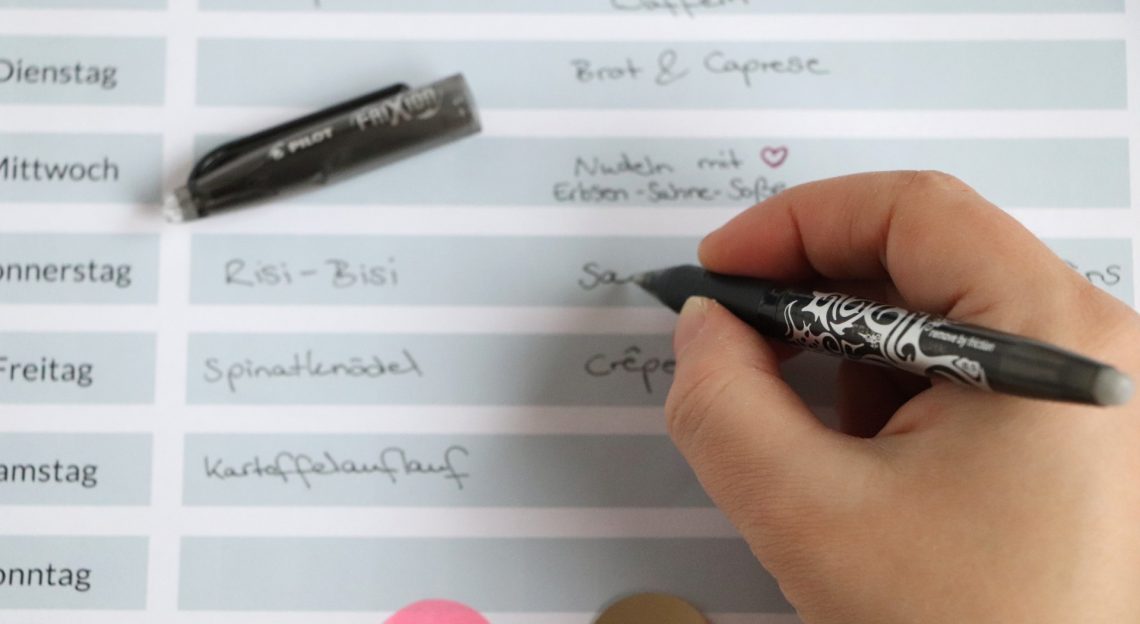 Dienstag Brot & Caprese
PILOT FRIXION
Mittwoch Nudeln mit
Erbsen-Sahne-Soße
onnerstag Risi-Bisi Sa ns
remove by friction
Freitag Spinatknödel Crêpe
amstag Kartoffelauflauf
onntag